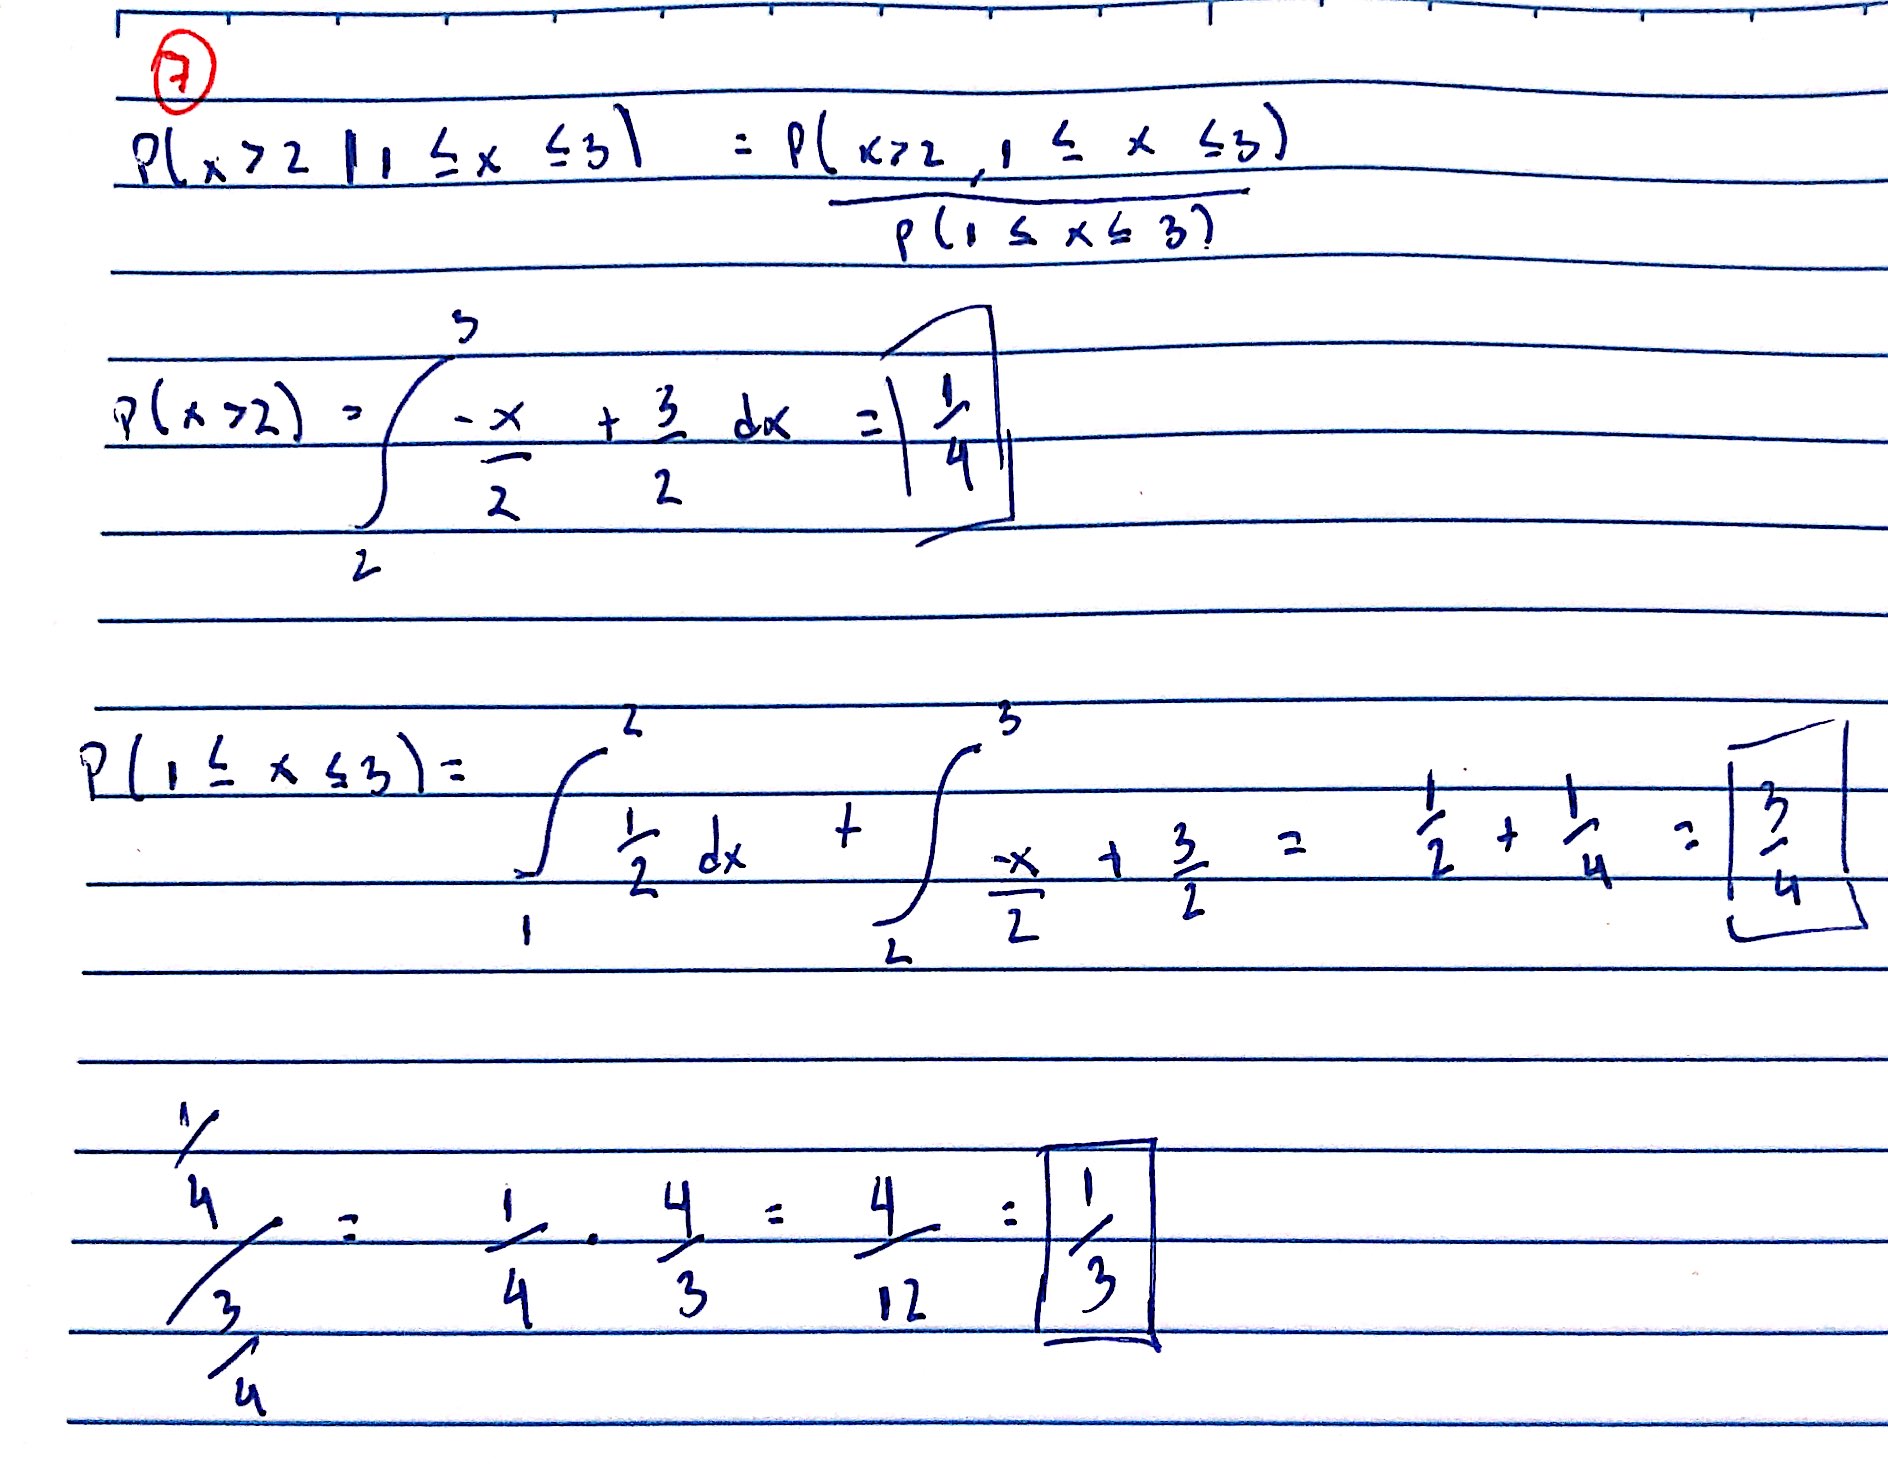 7
P(x>2 | 1 ≤ x ≤ 3) = P(x>2, 1 ≤ x ≤ 3) / P(1 ≤ x ≤ 3)
P(x>2) = ∫_2^3 -x/2 + 3/2 dx = 1/4
P(1 ≤ x ≤ 3) = ∫_1^2 1/2 dx + ∫_2^3 -x/2 + 3/2 = 1/2 + 1/4 = 3/4
1/4 / 3/4 = 1/4 · 4/3 = 4/12 = 1/3